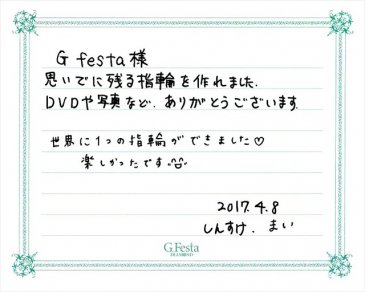 G festa 様
思いでに残る指輪を作れました.
DVDや写真など、ありがとうございます.
世界に1つの指輪ができました♡
楽しかったです。
2017.4.8
しんすけ. まい
G.Festa
DIAMOND